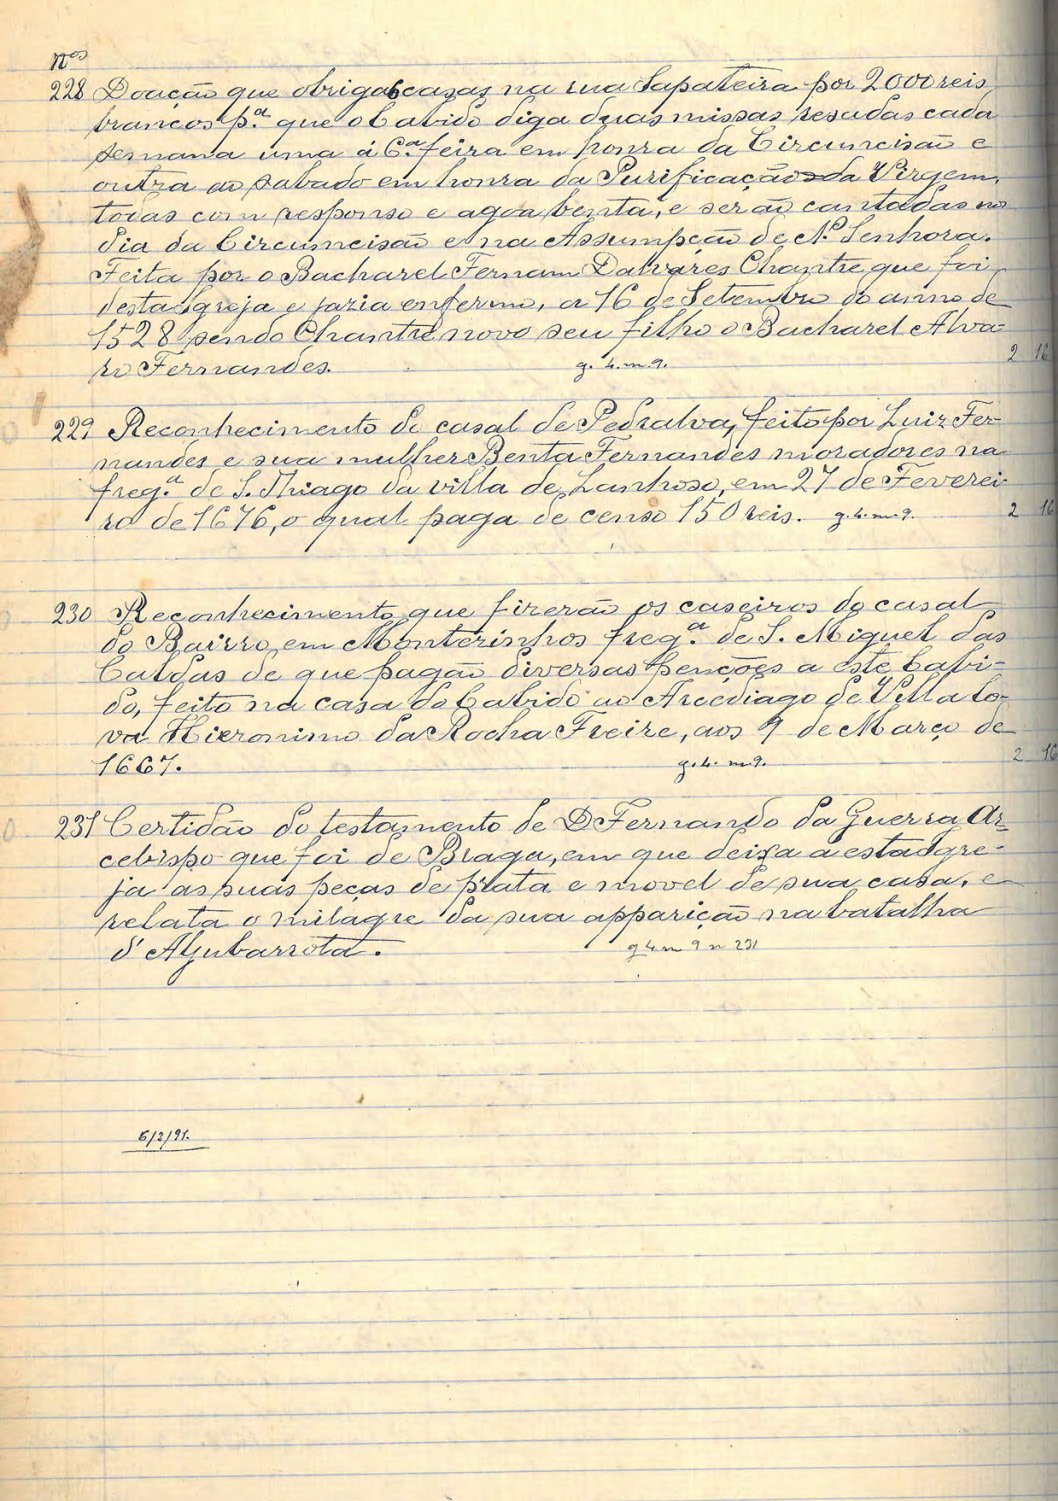 Nos
228 Doação que obriga 6 cazas na rua Sapateira por 2000 reis
brancos p.ª que o Cabido diga duas missas resadas cada
semana uma á 6.ª feira em honra da Circumcisão e
outra ao sabado em honra da Purificação da Virgem,
todas com responso e agoa benta, e serão cantadas no
dia da Circumcisão e na Assumpção de N.ª Senhora.
Feita por o Bacharel Fernam Dalvares Chantre que foi
desta Igreja e jazia enfermo, a 16 de Setembro do anno de
1528 sendo Chantre novo seu filho o Bacharel Alva-
ro Fernandes. g. 4. m. 9. 2 16
229 Reconhecimento do casal de Pedralva, feito por Luiz Fer-
nandes e sua mulher Benta Fernandes moradores na
freg.ª de S. Thiago da villa de Lanhoso, em 27 de Feverei-
ro de 1676, o qual paga de censo 150 reis. g. 4. m. 9. 2 16
230 Reconhecimento que fizerão os caseiros do casal
do Bairro, em Monterinhos freg.ª de S. Miguel das
Caldas de que pagão diversas penções a este Cabi-
do, feito na casa do Cabido ao Arcediago de Villa Co-
va Hieronimo da Rocha Freire, aos 9 de Março de
1667. g. 4. m. 9. 2 16
231 Certidão do testamento de D Fernando da Guerra Ar-
cebispo que foi de Braga, em que deixa a esta Igre-
ja as suas peças de prata e movel de sua casa, e
relata o milagre da sua apparição na batalha
d'Aljubarrota. g 4 m 9 n 231
6/2/91.